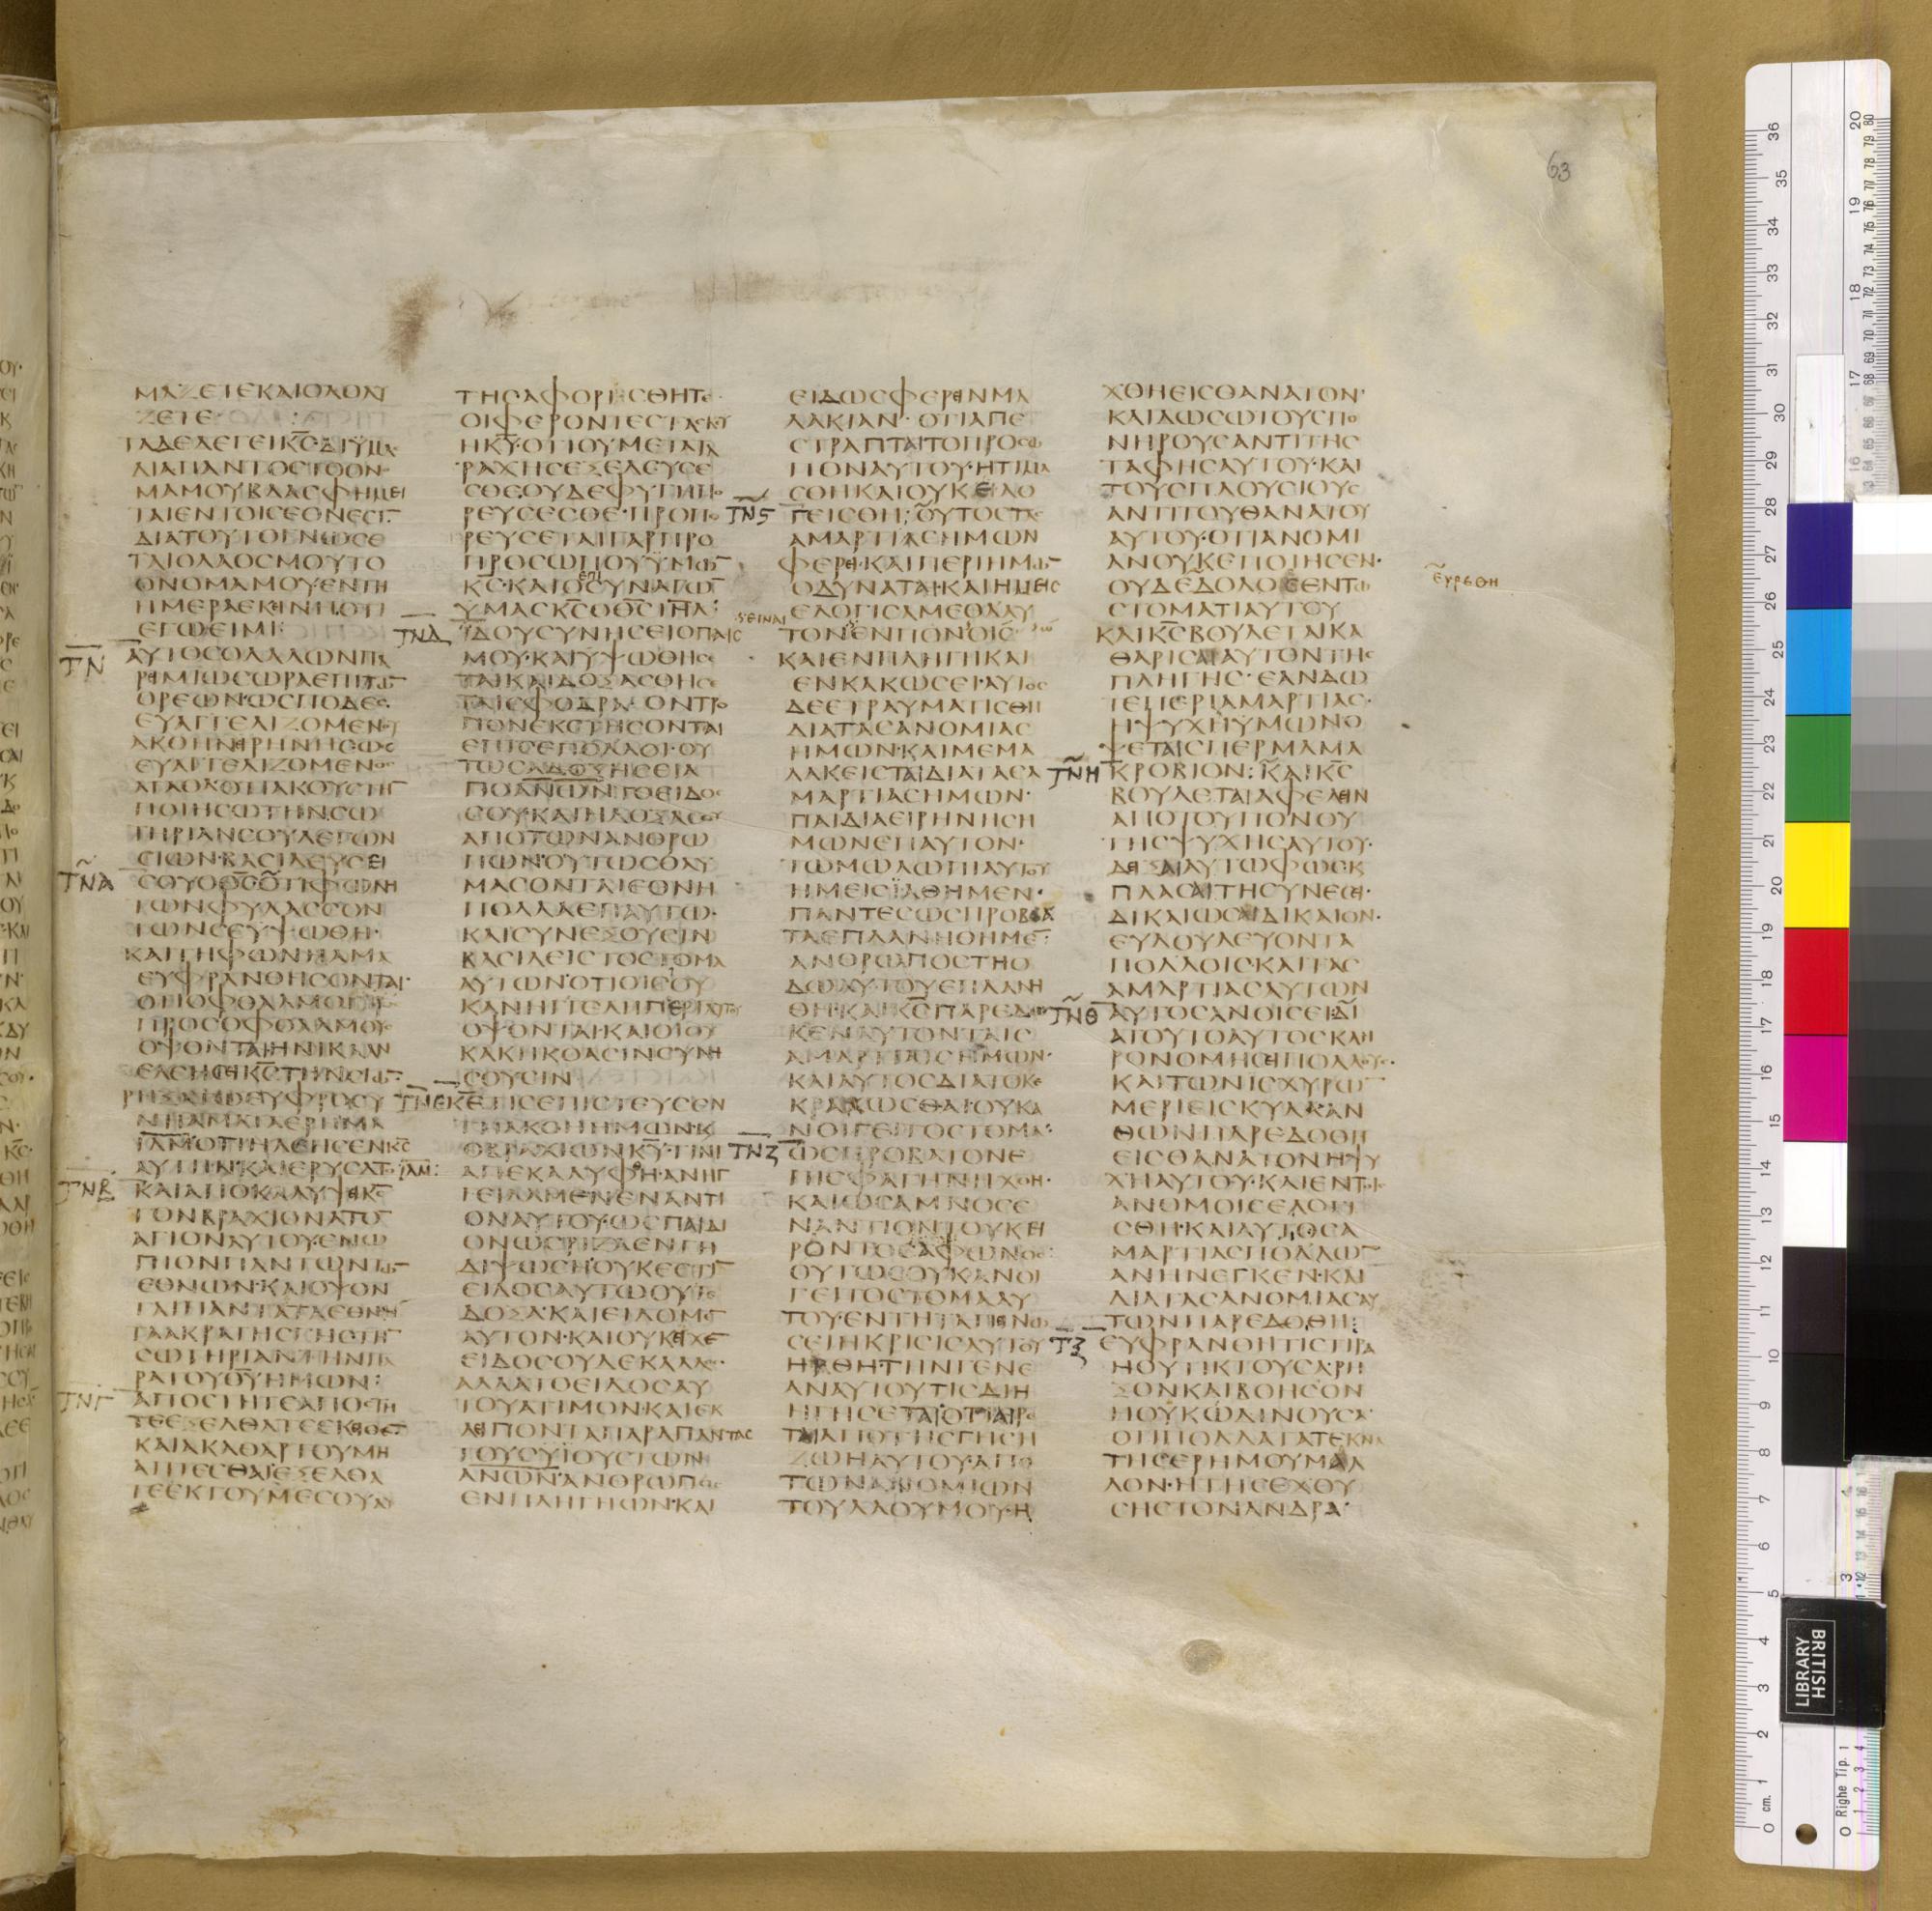 63
ΜΑΖΕΤΕΚΑΙΟΛΟΛΥ
ΖΕΤΕ·
ΤΑΔΕΛΕΓΕΙΚ̅C̅ΔΙΫΜΑC
ΔΙΑΠΑΝΤΟCΤΟΟΝΟ
ΜΑΜΟΥΒΛΑCΦΗΜΕΙ
ΤΑΙΕΝΤΟΙCΕΘΝΕCΙ̅
ΔΙΑΤΟΥΤΟΓΝΩCΕ
ΤΑΙΟΛΑΟCΜΟΥΤΟ
ΟΝΟΜΑΜΟΥΕΝΤΗ
ΗΜΕΡΑΕΚΙΝΗΟΤΙ
ΕΓΩΕΙΜΙ
Τ̅Ν̅ ΑΥΤΟCΟΛΑΛΩΝΠΑ
ΡΕΙΜΙΩCΩΡΑΕΠΙΤΩ̅
ΟΡΕΩΝ·ΩCΠΟΔΕC
ΕΥΑΓΓΕΛΙΖΟΜΕΝΟΥ
ΑΚΟΗΝΕΙΡΗΝΗCΩC
ΕΥΑΓΓΕΛΙΖΟΜΕΝΟC
ΑΓΑΘΑΟΤΙΑΚΟΥCΤΗ̅
ΠΟΙΗCΩΤΗΝCΩ
ΤΗΡΙΑΝCΟΥΛΕΓΩΝ
CΙΩΝ·ΒΑCΙΛΕΥCΕΙ
Τ̅Ν̅Α̅ CΟΥΟΘ̅C̅ΟΤΙΦΩΝΗ
ΤΩΝΦΥΛΑCCΟΝ
ΤΩΝCΕΥΨΩΘΗ·
ΚΑΙΤΗΦΩΝΗΑΜΑ
ΕΥΦΡΑΝΘΗCΟΝΤΑΙ·
ΟΤΙΟΦΘΑΛΜΟΙ
ΠΡΟCΟΦΘΑΛΜΟΥC
ΟΨΟΝΤΑΙΗΝΙΚΑΑΝ
ΕΛΕΗCΕΙΚ̅C̅ΤΗΝCΙΩ̅
ΡΗΞΑΤΩΕΥΦΡΟCΥ
ΝΗΝΑΜΑΤΑΕΡΗΜΑ
ΙΛ̅Η̅Μ̅ΟΤΙΗΛΕΗCΕΝΚ̅C̅
ΑΥΤΗΝΚΑΙΕΡΥCΑΤΟ ΙΛ̅Η̅Μ̅:
Τ̅Ν̅Β̅ ΚΑΙΑΠΟΚΑΛΥΨΕΙΚ̅C̅
ΤΟΝΒΡΑΧΙΟΝΑΤΟ̅
ΑΓΙΟΝΑΥΤΟΥΕΝΩ
ΠΙΟΝΠΑΝΤΩΝΤΩ̅
ΕΘΝΩΝ·ΚΑΙΟΨΟΝ
ΤΑΙΠΑΝΤΑΤΑΕΘΝΗ
ΤΑΑΚΡΑΤΗCΓΗCΤΗ̅
CΩΤΗΡΙΑΝΤΗΝΠΑ
ΡΑΤΟΥΘ̅Υ̅ΗΜΩΝ:
Τ̅Ν̅Γ̅ ΑΠΟCΤΗΤΕΑΠΟCΤΗ
ΤΕΕΞΕΛΘΑΤΕΕΚΕΙΘΕ̅
ΚΑΙΑΚΑΘΑΡΤΟΥΜΗ
ΑΠΤΕCΘΑΙΕΞΕΛΘΑ
ΤΕΕΚΤΟΥΜΕCΟΥΑΥ
ΤΗCΑΦΟΡΙCΘΗΤΕ
ΟΙΦΕΡΟΝΤΕCΤΑCΚΕΥ
ΗΚ̅Υ̅·ΟΤΙΟΥΜΕΤΑΤΑ
ΡΑΧΗCΕΞΕΛΕΥCΕ
CΘΕΟΥΔΕΦΥΓΗΠΟ
ΡΕΥCΕCΘΕ·ΠΡΟΠΟ
ΡΕΥCΕΤΑΙΓΑΡΠΡΟ
ΠΡΟCΩΠΟΥΫΜΩ̅
Κ̅C̅·ΚΑΙΟΕΠΙCΥΝΑΓΩ̅
ΥΜΑCΚ̅C̅ΟΘ̅C̅ΙΗ̅Λ̅:
Τ̅Ν̅Δ̅ ΪΔΟΥCΥΝΗCΕΙΟΠΑΙC
ΜΟΥ·ΚΑΙΥΨΩΘΗCΕ
ΤΑΙΚΑΙΔΟΞΑCΘΗCΕ
ΤΑΙCΦΟΔΡΑ·ΟΝΤΡΟ
ΠΟΝΕΚCΤΗCΟΝΤΑΙ
ΕΠΙCΕΠΟΛΛΟΙ·ΟΥ
ΤΩCΑΔΟΞΗCΕΙΑ
ΠΟΑΝ̅Ω̅Ν̅ΤΟΕΙΔΟC
CΟΥ·ΚΑΙΗΔΟΞΑCΟΥ
ΑΠΟΤΩΝΑΝΘΡΩ
ΠΩΝ·ΟΥΤΩCΘΑΥ
ΜΑCΟΝΤΑΙΕΘΝΗ
ΠΟΛΛΑΕΠΑΥΤΩ·
ΚΑΙCΥΝΕΞΟΥCΙΝ
ΒΑCΙΛΕΙCΤΟCΤΟΜΑ
ΑΥΤΩΝΟΤΙΟΙCΟΥ
ΚΑΝΗΓΓΕΛΗΠΕΡΙΑΥΤΟΥ
ΟΨΟΝΤΑΙ·ΚΑΙΟΙΟΥ
ΚΑΚΗΚΟΑCΙΝCΥΝΗ
CΟΥCΙΝ
Τ̅Ν̅Ε̅ Κ̅Ε̅ΤΙCΕΠΙCΤΕΥCΕΝ
ΤΗΑΚΟΗΗΜΩΝ·Κ
ΟΒΡΑΧΙΩΝΚ̅Υ̅·ΤΙΝΙ
ΑΠΕΚΑΛΥΦΘΗ·ΑΝΗΓ
ΓΕΙΛΑΜΕΝΕΝΑΝΤΙ
ΟΝΑΥΤΟΥ·ΩCΠΑΙΔΙ
ΟΝΩCΡΙΖΑΕΝΓΗ
ΔΙΨΩCΗΟΥΚΕCΤΙ̅
ΕΙΔΟCΑΥΤΩΟΥΤΕ
ΔΟΞΑ·ΚΑΙΕΙΔΟΜΕ̅
ΑΥΤΟΝ·ΚΑΙΟΥΚΕΙΧΕ̅
ΕΙΔΟCΟΥΔΕΚΑΛΛΟC·
ΑΛΛΑΤΟΕΙΔΟCΑΥ
ΤΟΥΑΤΙΜΟΝ·ΚΑΙΕΚ
ΛΕΙΠΟΝΤΑΠΑΡΑΠΑΝΤΑC
ΤΟΥCΥΪΟΥCΤΩΝ
ΑΝ̅Ω̅Ν̅ΑΝΘΡΩΠΟC
ΕΝΠΛΗΓΗΩΝ·ΚΑΙ
ΕΙΔΩCΦΕΡΕΙΝΜΑ
ΛΑΚΙΑΝ·ΟΤΙΑΠΕ
CΤΡΑΠΤΑΙΤΟΠΡΟCΩ
ΠΟΝΑΥΤΟΥ·ΗΤΙΜΑ
CΘΗΚΑΙΟΥΚΕΛΟ
Τ̅Ν̅Ϛ̅ ΓΕΙCΘΗ;ΟΥΤΟCΤΑC
ΑΜΑΡΤΙΑCΗΜΩΝ
ΦΕΡΕΙ·ΚΑΙΠΕΡΙΗΜΩ̅
ΟΔΥΝΑΤΑΙ·ΚΑΙΗΜΕΙC
ΕΛΟΓΙCΑΜΕΘΑΑΥ
ΤΟΝΕΝΠΟΝΟΙC·
ΚΑΙΕΝΠΛΗΓΗΚΑΙ
ΕΝΚΑΚΩCΕΙ·ΑΥΤΟC
ΔΕΕΤΡΑΥΜΑΤΙCΘΗ
ΔΙΑΤΑCΑΝΟΜΙΑC
ΗΜΩΝ·ΚΑΙΜΕΜΑ
ΛΑΚΕΙCΤΑΙΔΙΑΤΑCΑ
ΜΑΡΤΙΑCΗΜΩΝ·
ΠΑΙΔΙΑΕΙΡΗΝΗCΗ
ΜΩΝΕΠΑΥΤΟΝ·
ΤΩΜΩΛΩΠΙΑΥΤΟΥ
ΗΜΕΙCΪΑΘΗΜΕΝ·
ΠΑΝΤΕCΩCΠΡΟΒΑ
ΤΑΕΠΛΑΝΗΘΗΜΕ̅·
ΑΝΘΡΩΠΟCΤΗΟ
ΔΩΑΥΤΟΥΕΠΛΑΝΗ
ΘΗ·ΚΑΙΚ̅C̅ΠΑΡΕΔΩ
ΚΕΝΑΥΤΟΝΤΑΙC
ΑΜΑΡΤΙΑΙCΗΜΩΝ·
ΚΑΙΑΥΤΟCΔΙΑΤΟΚΕ
ΚΑΚΩCΘΑΙ·ΟΥΚΑ
ΝΟΙΓΕΙΤΟCΤΟΜΑ·
Τ̅Ν̅Ζ̅ ΩCΠΡΟΒΑΤΟΝΕ
ΠΙCΦΑΓΗΝΗΧΘΗ·
ΚΑΙΩCΑΜΝΟCΕ
ΝΑΝΤΙΟΝΤΟΥΚΕΙ
ΡΟΝΤΟCΑΦΩΝΟC:
ΟΥΤΩCΟΥΚΑΝΟΙ
ΓΕΙΤΟCΤΟΜΑΑΥ
ΤΟΥ·ΕΝΤΗΤΑΠΕΙΝΩ
CΕΙΗΚΡΙCΙCΑΥΤΟΥ
ΗΡΘΗ·ΤΗΝΓΕΝΕ
ΑΝΑΥΤΟΥΤΙCΔΙΗ
ΗΓΗCΕΤΑΙΟΤΙΑΙΡΕ
ΤΑΙΑΠΟΤΗCΓΗCΗ
ΖΩΗΑΥΤΟΥ·ΑΠΟ
ΤΩΝΑΝΟΜΙΩΝ
ΤΟΥΛΑΟΥΜΟΥ·Η
ΧΘΗΕΙCΘΑΝΑΤΟΝ·
ΚΑΙΔΩCΩΤΟΥCΠΟ
ΝΗΡΟΥCΑΝΤΙΤΗC
ΤΑΦΗCΑΥΤΟΥ·ΚΑΙ
ΤΟΥCΠΛΟΥCΙΟΥC
ΑΝΤΙΤΟΥΘΑΝΑΤΟΥ
ΑΥΤΟΥ·ΟΤΙΑΝΟΜΙ
ΑΝΟΥΚΕΠΟΙΗCΕΝ·
ΟΥΔΕΔΟΛΟCΕΝΤΩ ΕΥΡΕΘΗ
CΤΟΜΑΤΙΑΥΤΟΥ
ΚΑΙΚ̅C̅ΒΟΥΛΕΤΑΙΚΑ
ΘΑΡΙCΑΙΑΥΤΟΝΤΗC
ΠΛΗΓΗC·ΕΑΝΔΩ
ΤΕΠΕΡΙΑΜΑΡΤΙΑC·
ΗΨΥΧΗΫΜΩΝΟ
ΨΕΤΑΙCΠΕΡΜΑΜΑ
Τ̅Ν̅Η̅ ΚΡΟΒΙΟΝ:ΚΑΙΚ̅C̅
ΒΟΥΛΕΤΑΙΑΦΕΛΕΙΝ
ΑΠΟΤΟΥΠΟΝΟΥ
ΤΗCΨΥΧΗCΑΥΤΟΥ·
ΔΕΙΞΑΙΑΥΤΩΦΩCΚ
ΠΛΑCΑΙΤΗCΥΝΕCΕΙ·
ΔΙΚΑΙΩCΑΙΔΙΚΑΙΟΝ·
ΕΥΔΟΥΛΕΥΟΝΤΑ
ΠΟΛΛΟΙCΚΑΙΤΑC
ΑΜΑΡΤΙΑCΑΥΤΩΝ
Τ̅Ν̅Θ̅ ΑΥΤΟCΑΝΟΙCΕΙΔΙ
ΑΤΟΥΤΟΑΥΤΟCΚΛΗ
ΡΟΝΟΜΗCΕΙΠΟΛΛΟΥC·
ΚΑΙΤΩΝΙCΧΥΡΩ̅
ΜΕΡΙΕΙCΚΥΛΑΑΝ
ΘΩΝΠΑΡΕΔΟΘΗ
ΕΙCΘΑΝΑΤΟΝΗΨΥ
ΧΗΑΥΤΟΥ·ΚΑΙΕΝΤΟΙC
ΑΝΟΜΟΙCΕΛΟΓΙ
CΘΗ·ΚΑΙΑΥΤΟCΑ
ΜΑΡΤΙΑCΠΟΛΛΩ̅
ΑΝΗΝΕΓΚΕΝ·ΚΑΙ
ΔΙΑΤΑCΑΝΟΜΙΑCΑΥ
ΤΩΝΠΑΡΕΔΟΘΗ:
Τ̅Ξ̅ ΕΥΦΡΑΝΘΗΤΙCΤΙΡΑ
ΗΟΥΤΙΚΤΟΥCΑ·ΡΗ
ΞΟΝΚΑΙΒΟΗCΟΝ
ΗΟΥΚΩΔΙΝΟΥCΑ·
ΟΤΙΠΟΛΛΑΤΑΤΕΚΝΑ
ΤΗCΕΡΗΜΟΥΜΑΛ
ΛΟΝ·ΗΤΗCΕΧΟΥ
CΗCΤΟΝΑΝΔΡΑ·
BRITISH
LIBRARY